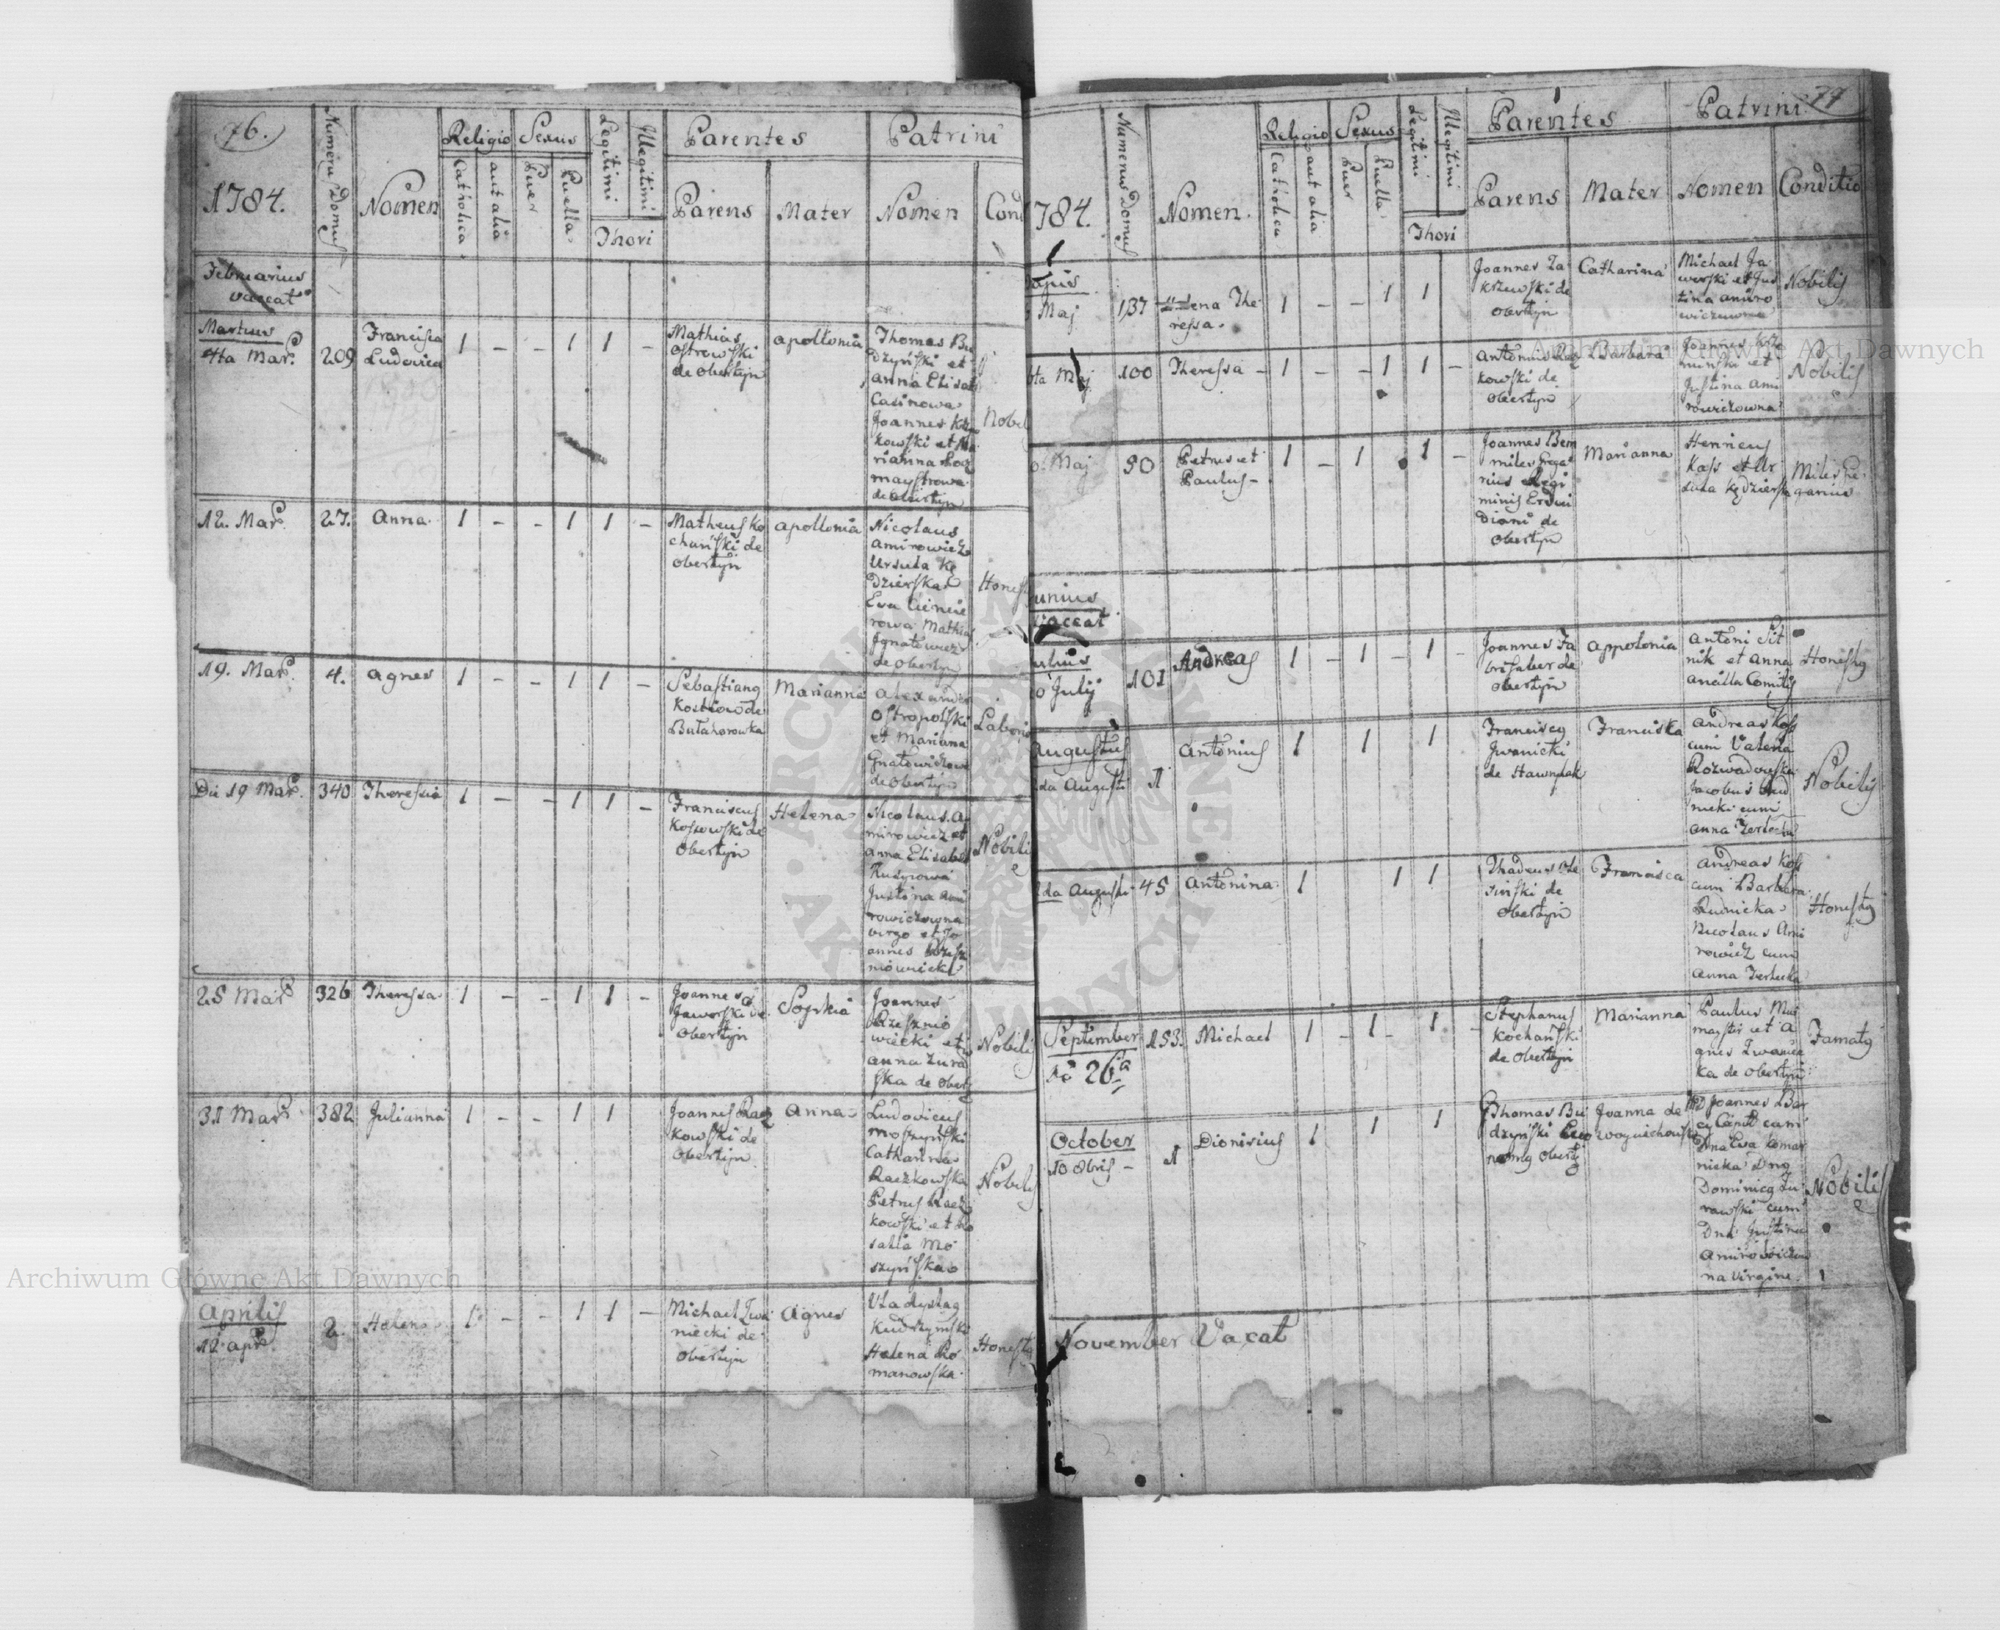 76.
1784.
Numerus Domus
Nomen
Religio
Catholica
aut alia
Sexus
Puer
Puella
Legitimi
Illegitimi
Thori
Parentes
Parens
Mater
Patrini
Nomen
Cond
Februarius
vaccat
Martius
4ta Mar. 209 Francisca
Ludovica
1 - - 1 1 -
Mathias
Ostrowski
de Obertyn
apollonia
Thomas Bu
dzyński et
anna Elisab
Casinowa
Joannes
kowski et Ma
rianna
maystrowa
de Obertyn
Nobil
12. Mar. 27. Anna
1 - - 1 1 -
Matheus Ko
chański de
obertyn
apollonia
Nicolaus
amirowicz
Ursula Kę
dzierska
Eva
rowa Mathias
Ignatowicz
de Obertyn
Honest
19. Mar. 4. agnes
1 - - 1 1 -
Sebastiang
de
Marianna
Alexander
Ostropolski
et Mariana
Gnatowiczowa
de Obertyn
Labori
Die 19 Mar. 340 Theressia
1 - - 1 1 -
Franciscus
Kossowski de
Obertyn
Helena
Nicolaus. a
mirowicz et
anna Elisabet
Justina ami
rowiczowna
virgo et Jo
annes
Nobili
25 Mar 326 Theressa
1 - - 1 1 -
Joannes
Jaworski de
Obertyn
Sophia
Joannes
Rzesznio
wiecki et
anna Zura
ska de Obert
Nobili
31 Mar. 382 Julianna
1 - - 1 1
Joannes Racz
kowski de
Obertyn
Anna
Ludovicus
Moszyński
Catharina
Raczkowska
Petrus Racz
kowski et Ro
salia Mo
szyńska
Nobilis
Aprilis
12 apr. 2. Helena
1 - - 1 1 -
Michael Iwa
niecki de
Obertyn
Agnes
Vladyslag
Kudrzynski
Helena Ro
manowska
Honestg
77
784.
Numerus Domus
Nomen.
Religio
Catholica
aut alia
Sexus
Puer
Puella
Legitimi
Illegitimi
Thori
Parentes
Parens
Mater
Patrini
Nomen
Conditio
Maj. 137 Helena The
ressa.
1 - - 1 1
Joannes Za
krzewski de
Obertyn
Catharina
Michael Ja
worski et Jus
tina amiro
wiczowna
Nobilis
6ta Maj 100 Theressa
1 - - 1 1 -
Antonius Racz
kowski de
Obertyn
Barbara
Joannes
et
Justina ami
rowiczowna
Nobilis
0. Maj 50 Petrus et
Paulus
1 - 1 1 -
Joannes Bem
miles Grega
rius Regi
minis
de
Obertyn
Marianna
Henricus
Kass et Ur
sula Kędzierska
Miles Gre
garius
unius
Vaccat
ulius
0 July 101 Andreas
1 - 1 - 1 -
Joannes Fa
bri faber de
Obertyn
Appolonia
Antoni Sit
nik et Anna
ancilla Comitis
Honestg
Augustus
da Augusti 1 Antonius
1 1 1
Franciscg
Iwanicki
de Hawrylak
Franciska
Andreas Koss
cum Valeria
Rozwadowska
Jacobus Rud
nicki cum
anna Zerlecka
Nobilis
da Augusti 45 Antonina
1 1 1
Thadeus Ole
siński de
Obertyn
Francisca
Andreas Koss
cum Barbara
Rudnicka
Nicolaus Ami
rowicz cum
Anna Zerlecka
Honestg
September
26 153. Michael
1 - 1 - 1 -
Stephanus
Kochański
de Obertyn
Marianna
Paulus Mu
maystr et A
gnes Iwaniec
ka de Obertyn
Famatg
October
10 8bris - 1 Dionisius
1 1 1
Thomas Bu
dzyński Eco
nomg Oberty
Joanna de
Woyciechowski
MD Joannes Bar
cum
Dna Eva Komar
nicka Dno
Dominicg Zu
rawski cum
Dna Justina
Amirowiczow
na virgine.
Nobilis
November Vacat
Archiwum Główne Akt Dawnych
Archiwum Główne Akt Dawnych